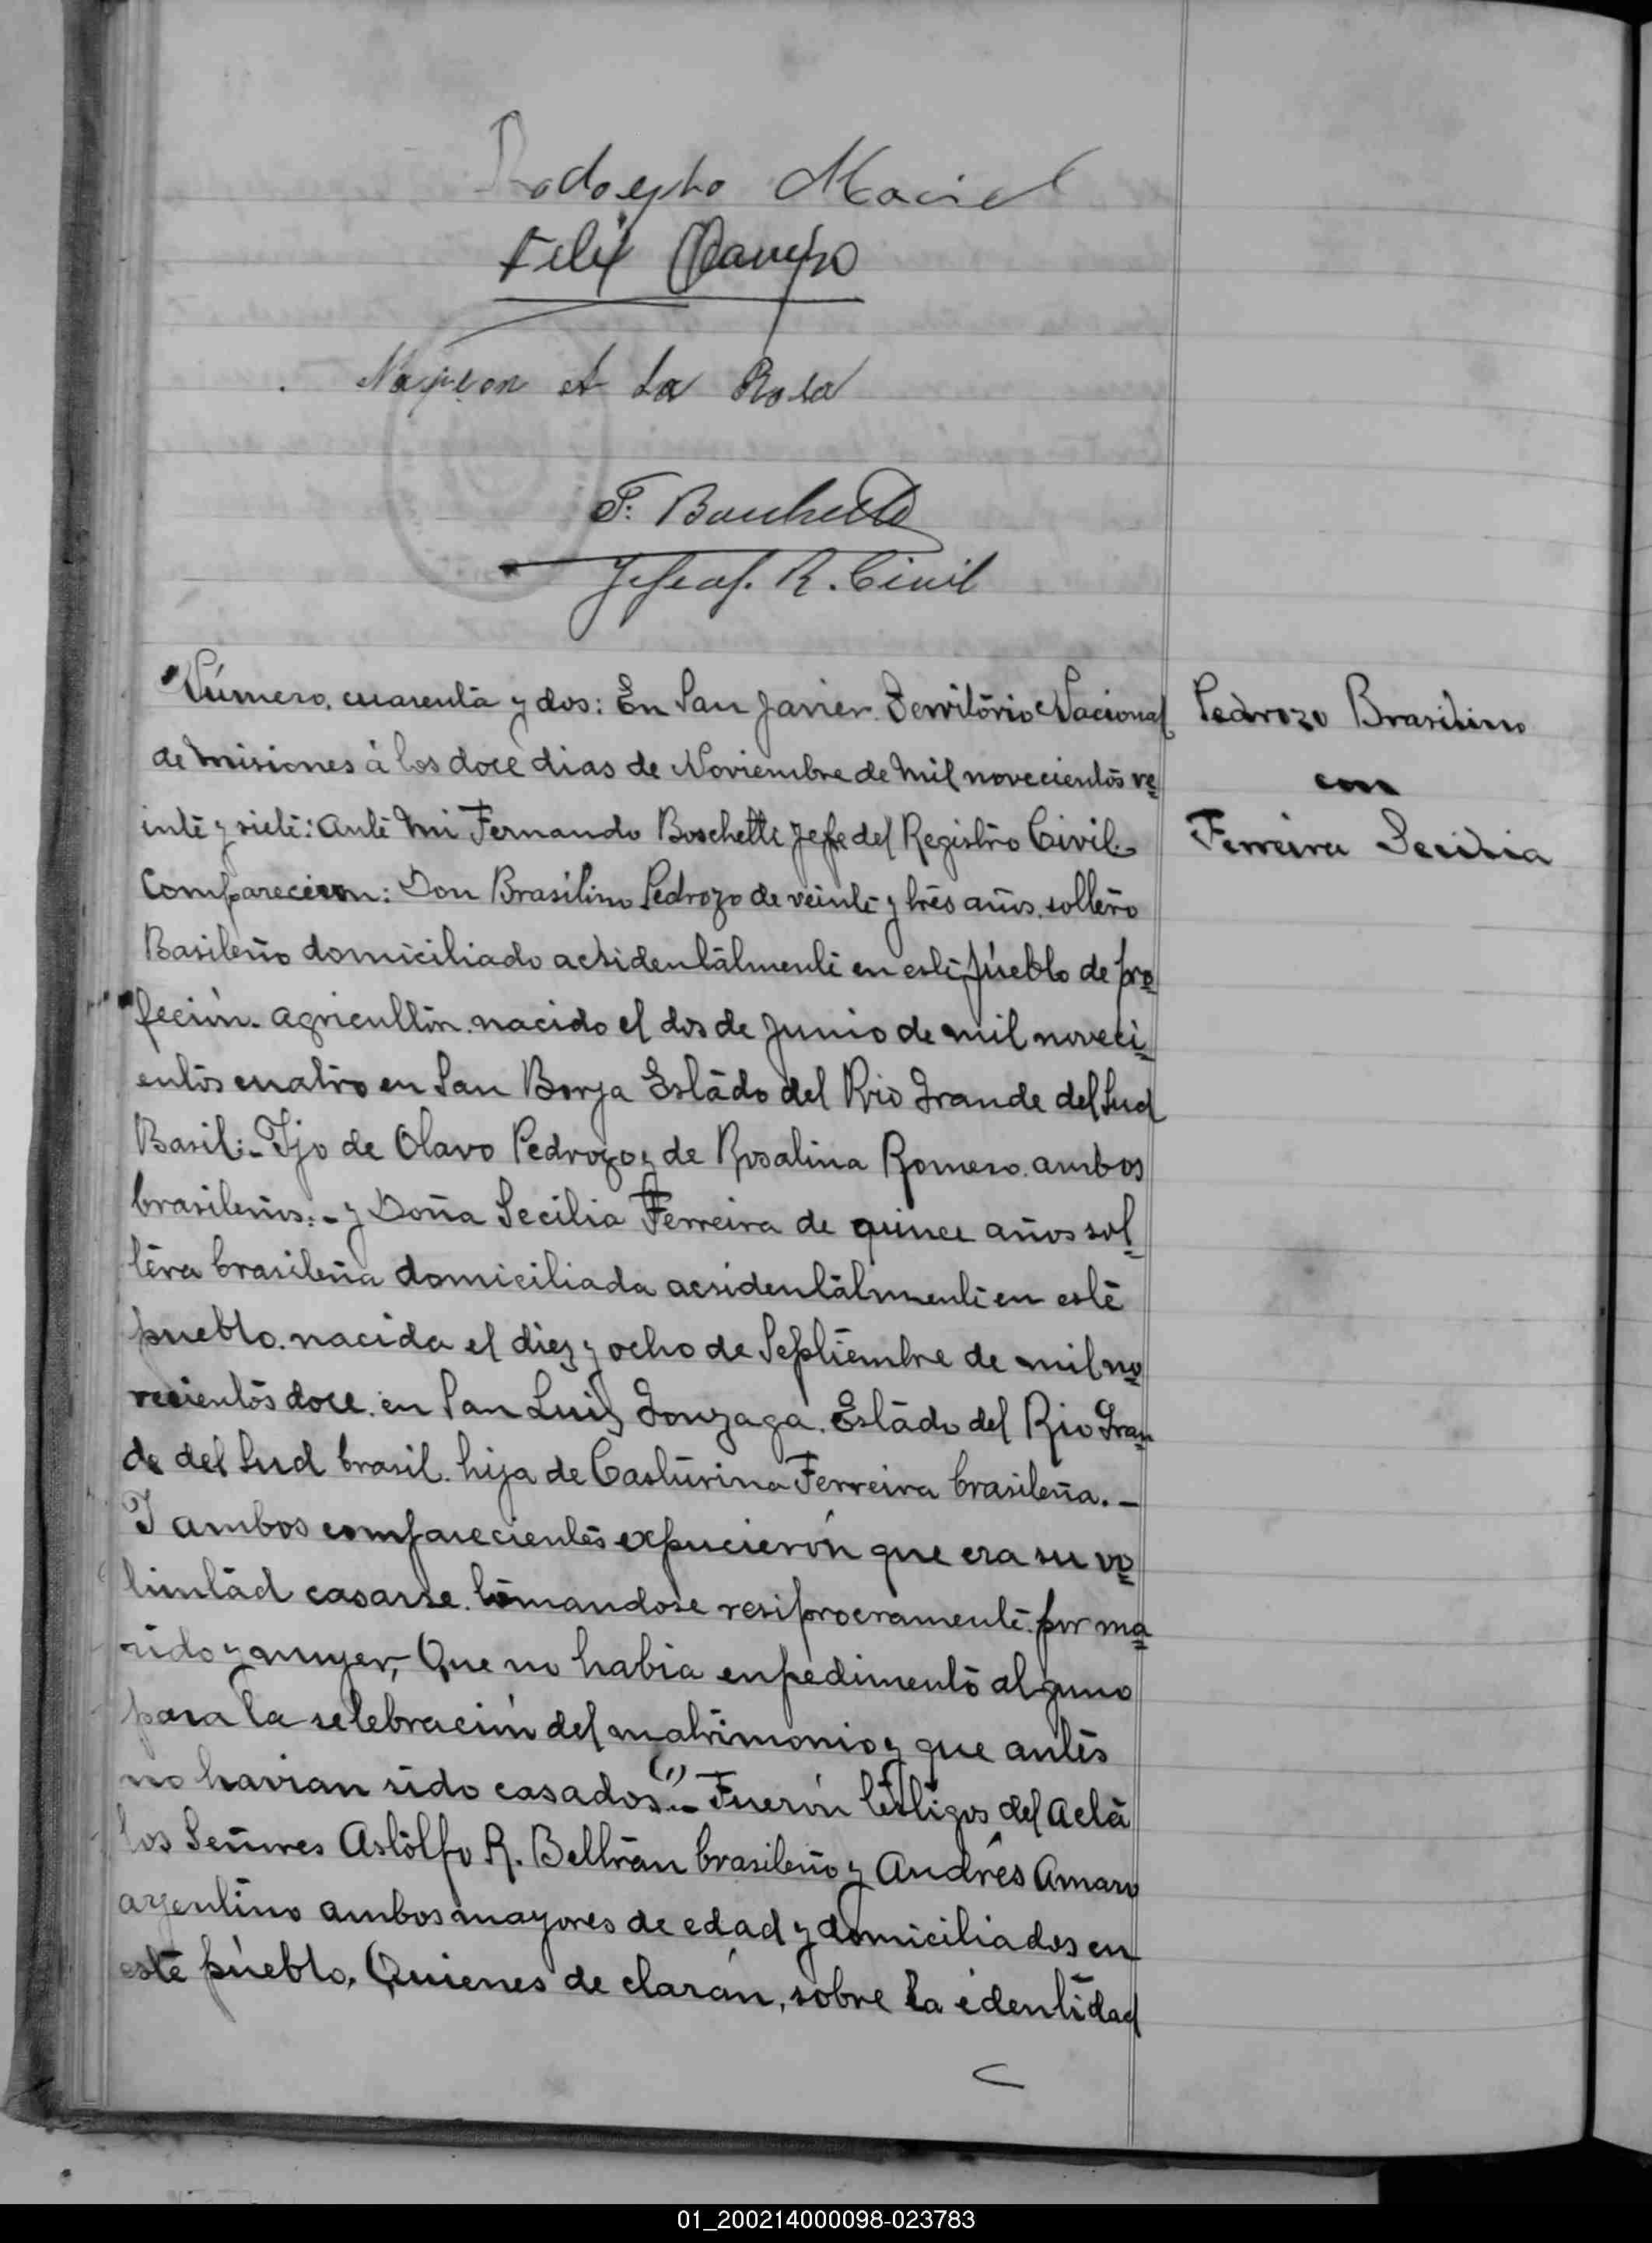 Rodolpho Maciel
Felix Ramirez
A La Rosa
F. Boschetti
Jefe of. R. Civil
Número, cuarenta y dos: En San Javier. Território Nacional
de Misiones á los doce dias de Noviembre de Mil novecientos ve=
inte y siete: Ante Mi Fernando Boschetti Jefe del Registro Civil.
Comparecieron: Don Brasilino Pedrozo de veinte y tres años, soltero
Basileño domiciliado acsidentalmente en este púeblo de pro=
feción. agricultor. nacido el dos de Junio de mil noveci=
entos cuatro en San Borja Estado del Rio Grande del Sud
Basil:- Ijo de Olavo Pedrozo y de Rosalina Romero. ambos
brasileños:- y Doña Secilia Ferreira de quince años sol=
tera brasileña domiciliada acsidentalmente en este
pueblo. nacida el diez y ocho de Septiembre de mil no=
vecientos doce. en San Luis Gonzaga. Estado del Rio Gran=
de del Sud brasil. hija de Casturina Ferreira brasileña. -
I ambos comparecientes expucierón que era su vo=
luntad casarse. tomandose resiprocramente. por ma=
rido y muyer, Que no habia enpedimento alguno
para la selebración del matrimonio y que antes
no havian sido casados (,) :- Fuerón testigos del acta
los Señores Astolfo R. Beltran brasileño y Andrés Amaro
argentino ambos mayores de edad y domiciliados en
este púeblo. Quienes de clarán, sobre la edentidad
Pedrozo Brasilino
con
Ferreira Secilia
01_200214000098-023783